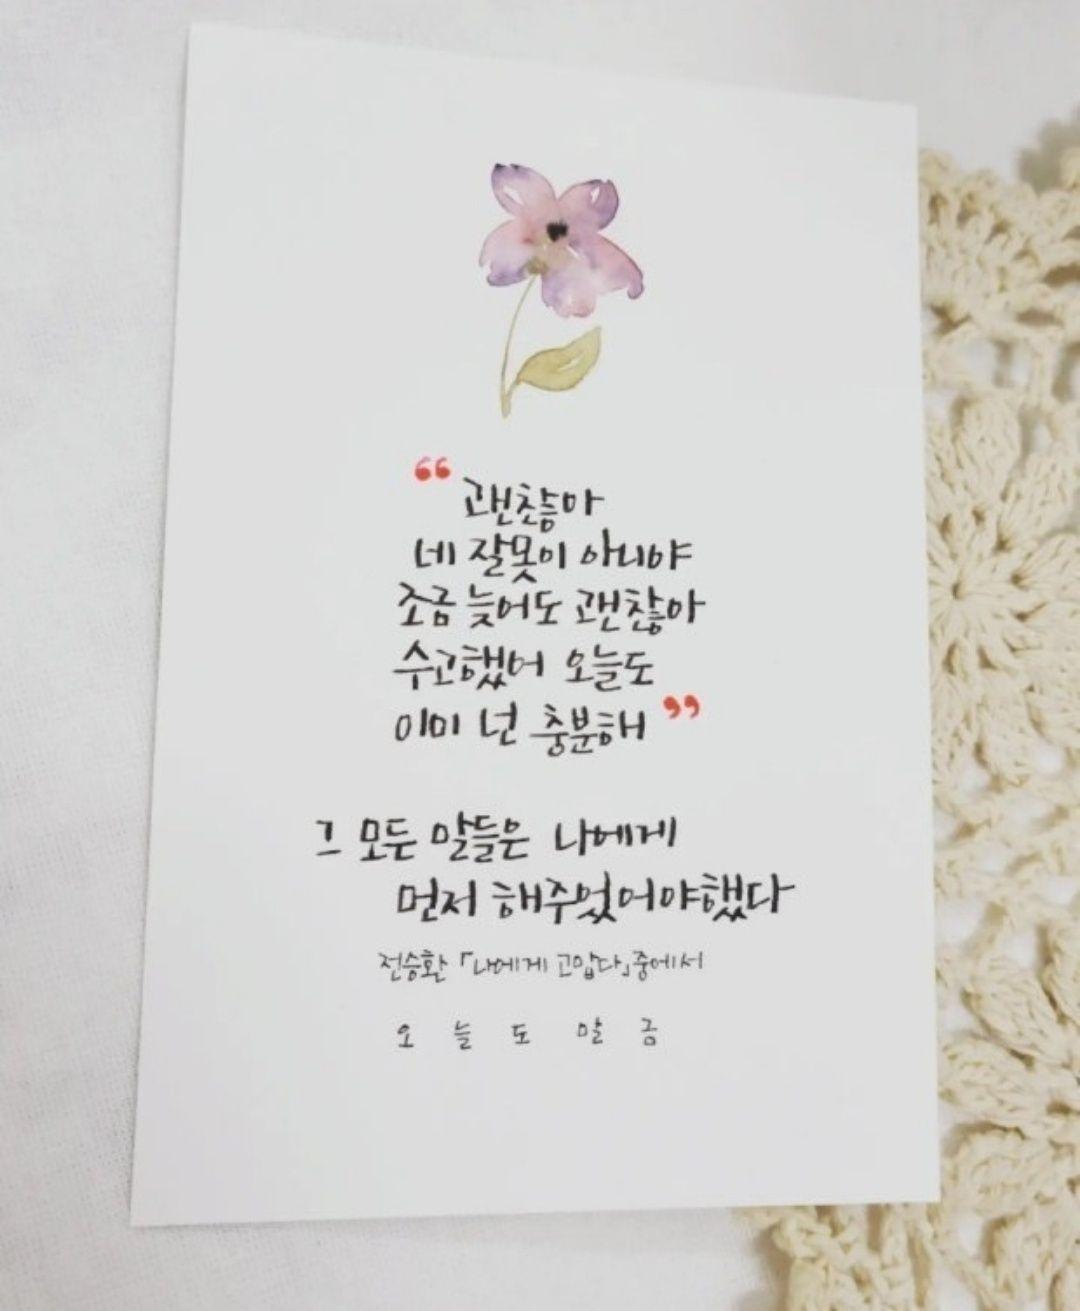 “괜찮아
네 잘못이 아니야
조금 늦어도 괜찮아
수고했어 오늘도
이미 넌 충분해”
그 모든 말들은 나에게
먼저 해주었어야했다
전승환 「나에게 고맙다」중에서
오늘도말금